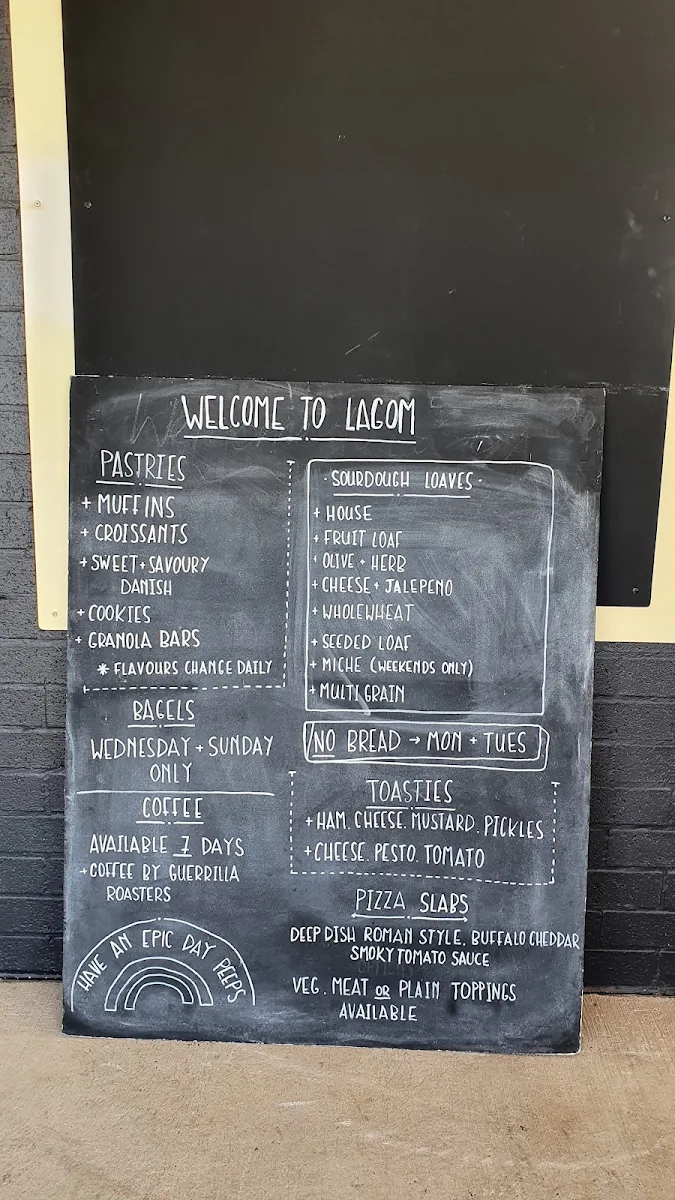 WELCOME TO LAGOM
PASTRIES
+ MUFFINS
+ CROISSANTS
+ SWEET + SAVOURY
DANISH
+ COOKIES
+ GRANOLA BARS
* FLAVOURS CHANGE DAILY
BAGELS
WEDNESDAY + SUNDAY
ONLY
COFFEE
AVAILABLE 7 DAYS
+ COFFEE BY GUERRILLA
ROASTERS
HAVE AN EPIC DAY PEEPS
· SOURDOUGH LOAVES ·
+ HOUSE
+ FRUIT LOAF
+ OLIVE + HERB
+ CHEESE + JALEPENO
+ WHOLEWHEAT
+ SEEDED LOAF
+ MICHE (WEEKENDS ONLY)
+ MULTI GRAIN
NO BREAD → MON + TUES
TOASTIES
+ HAM. CHEESE. MUSTARD. PICKLES
+ CHEESE. PESTO. TOMATO
PIZZA SLABS
DEEP DISH ROMAN STYLE. BUFFALO CHEDDAR
SMOKY TOMATO SAUCE
VEG. MEAT OR PLAIN TOPPINGS
AVAILABLE